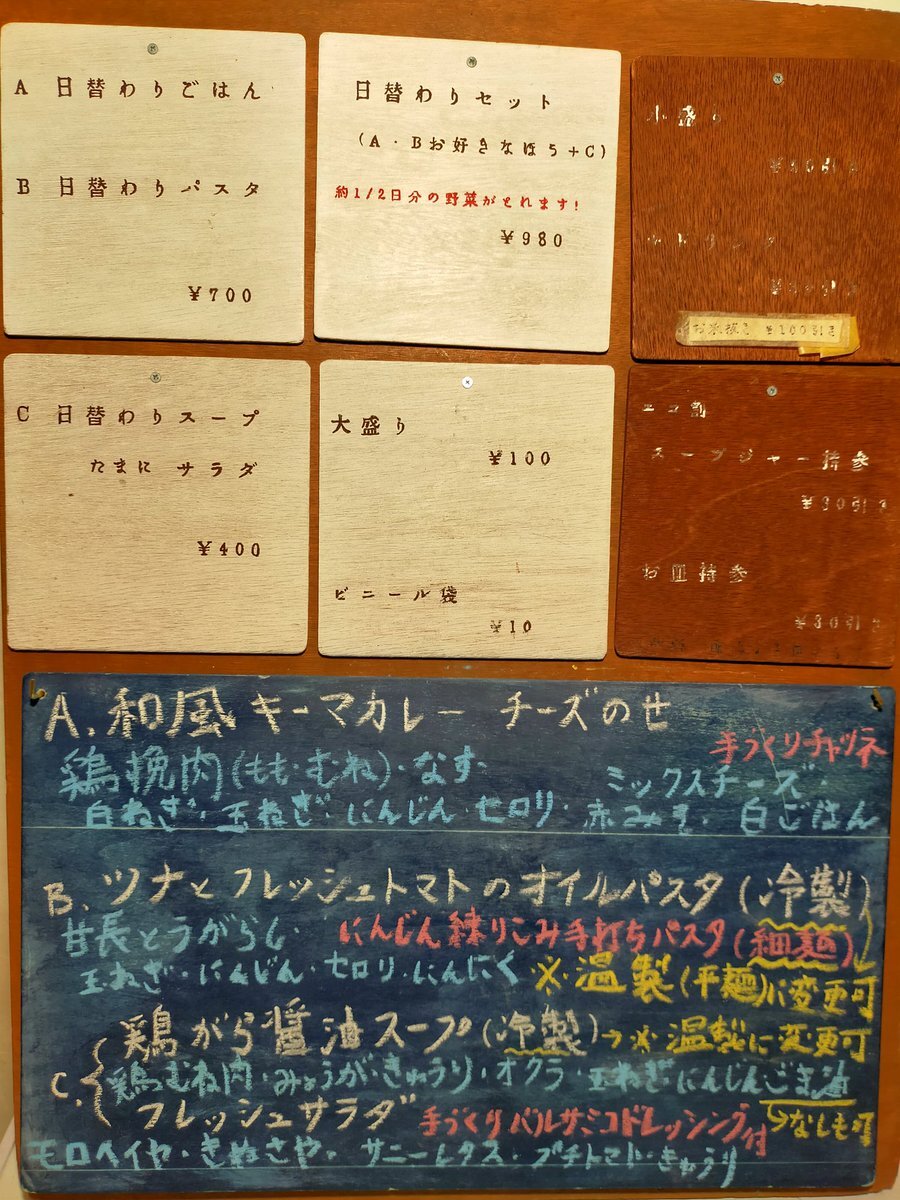 A 日替わりごはん
B 日替わりパスタ
¥700
日替わりセット
(A・Bお好きなほう+C)
約1/2日分の野菜がとれます!
¥980
小盛り
C 日替わりスープ
たまに サラダ
¥400
大盛り
¥100
ビニール袋
¥10
エコ割
スープジャー持参
¥30引き
お皿持参
¥30引き
A. 和風キーマカレー チーズのせ
手づくりチャツネ
鶏挽肉(もも・むね)・なす・
ミックスチーズ
白ねぎ・玉ねぎ・にんじん・セロリ・赤みそ・白ごはん
B. ツナとフレッシュトマトのオイルパスタ(冷製)
甘長とうがらし・
にんじん練りこみ手打ちパスタ(細麺)
玉ねぎ・にんじん・セロリ・にんにく
※温製(平麺)に変更可
C. 鶏がら醤油スープ(冷製)→※温製に変更可
鶏むね肉・みょうが・きゅうり・オクラ・玉ねぎ・にんじん・ごま油
フレッシュサラダ
手づくりバルサミコドレッシング付
なしも可
モロヘイヤ・きぬさや・サニーレタス・プチトマト・きゅうり